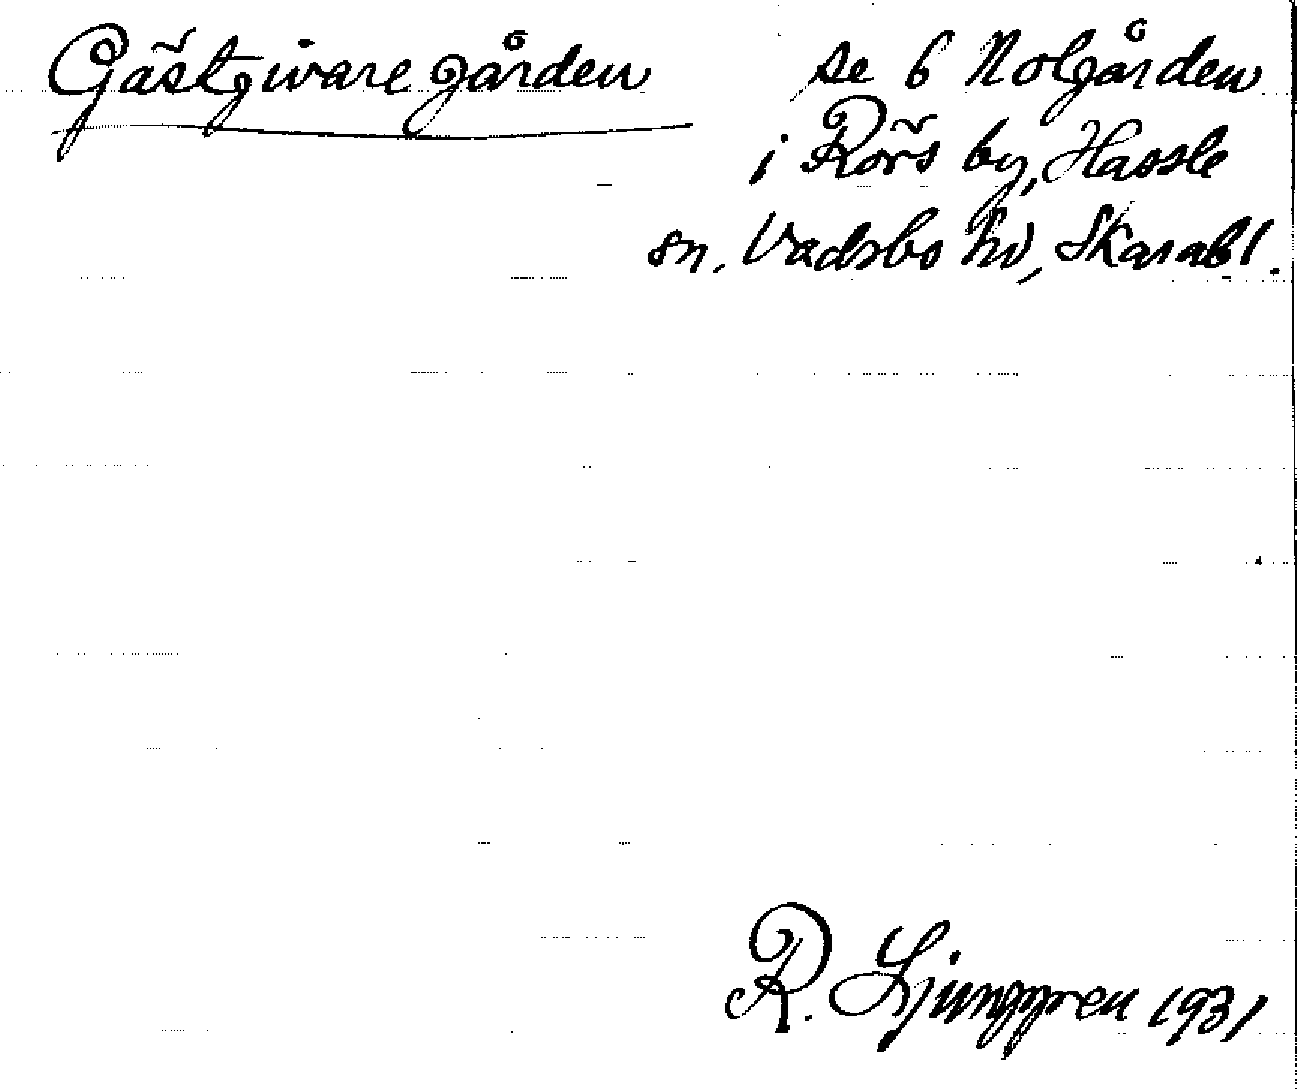 Gästgivaregården se 6 Nolgården
i Rörs by, Hassle
sn. Vadsbo hd, Skarabl.
R. Ljunggren 1931